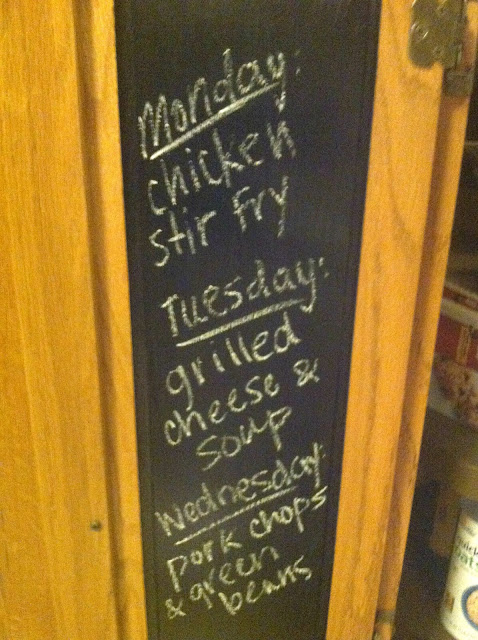 Monday:
chicken
stir fry
Tuesday:
grilled
cheese &
soup
Wednesday:
pork chops
& green
beans